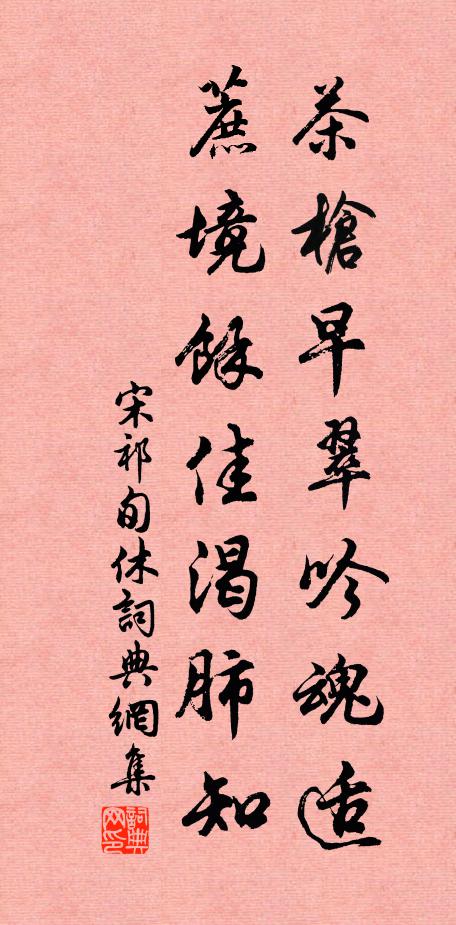 茶槍早翠吟魂适
蔗境餘佳渴肺知
宋祁旬休詞典網集
詞典網印